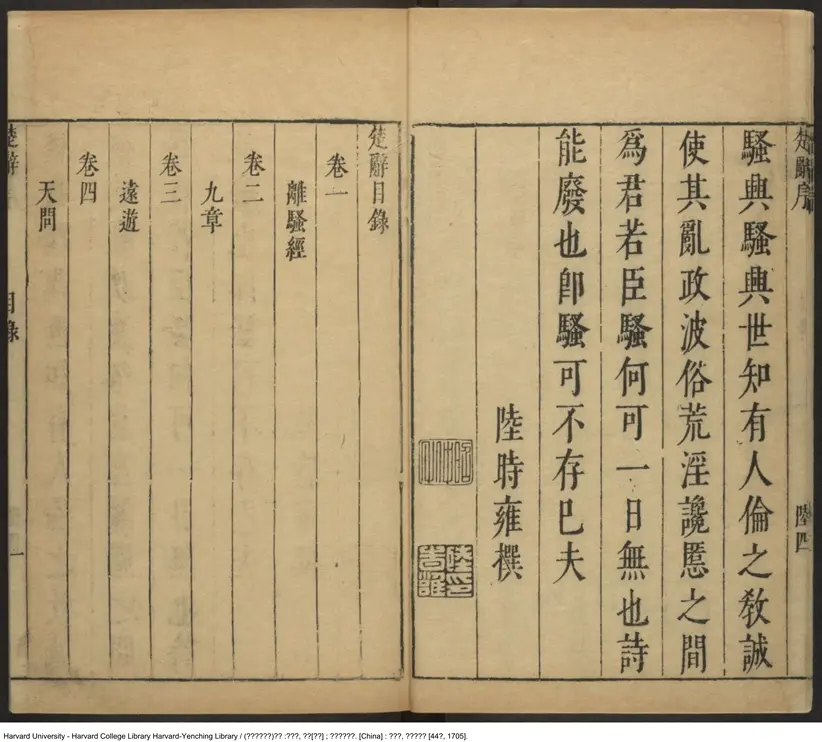 楚辭序
陸四
騷興騷興世知有人倫之敎誠
使其亂政波俗荒淫讒慝之間
爲君若臣騷何可一日無也詩
能廢也卽騷可不存巳夫
陸時雍撰
楚辭目錄
卷一
離騷經
卷二
九章
卷三
遠遊
卷四
天問
楚辭
目錄
一
Harvard University - Harvard College Library Harvard-Yenching Library / (??????)?? :???, ??[??] ; ??????. [China] : ???, ????? [44?, 1705].